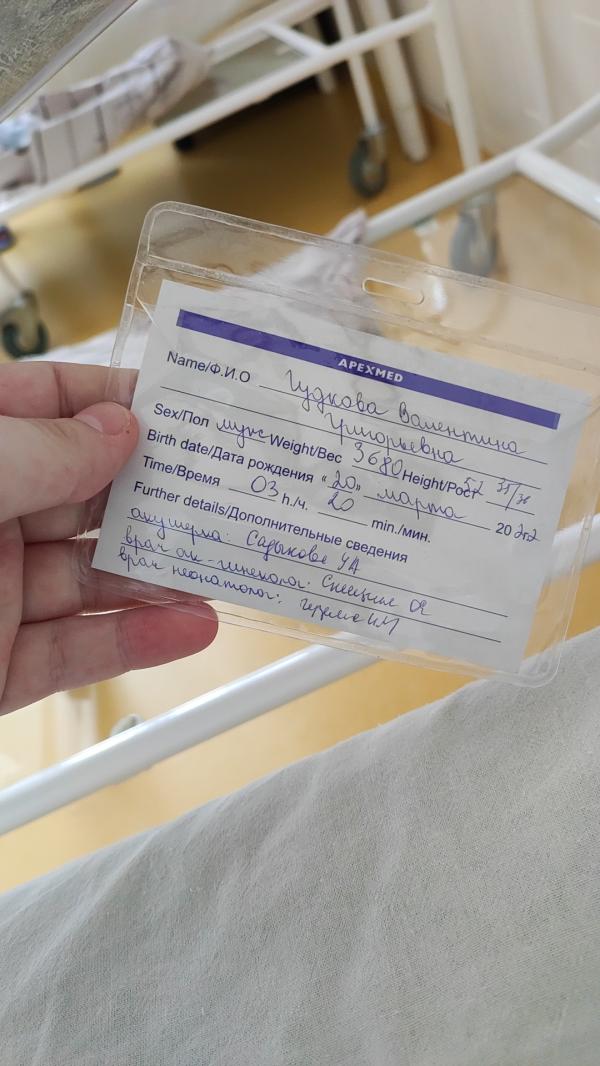 APEXMED
Name/Ф.И.О Гудкова Валентина
Григорьевна
Sex/Пол муж Weight/Вес 3680 Height/Рост 52 35/36
Birth date/Дата рождения "20" марта 2022
Time/Время 03 h./ч. 20 min./мин.
Further details/Дополнительные сведения
акушерка: Садыкова УА
врач ак-гинеколог:
врач неонатолог: